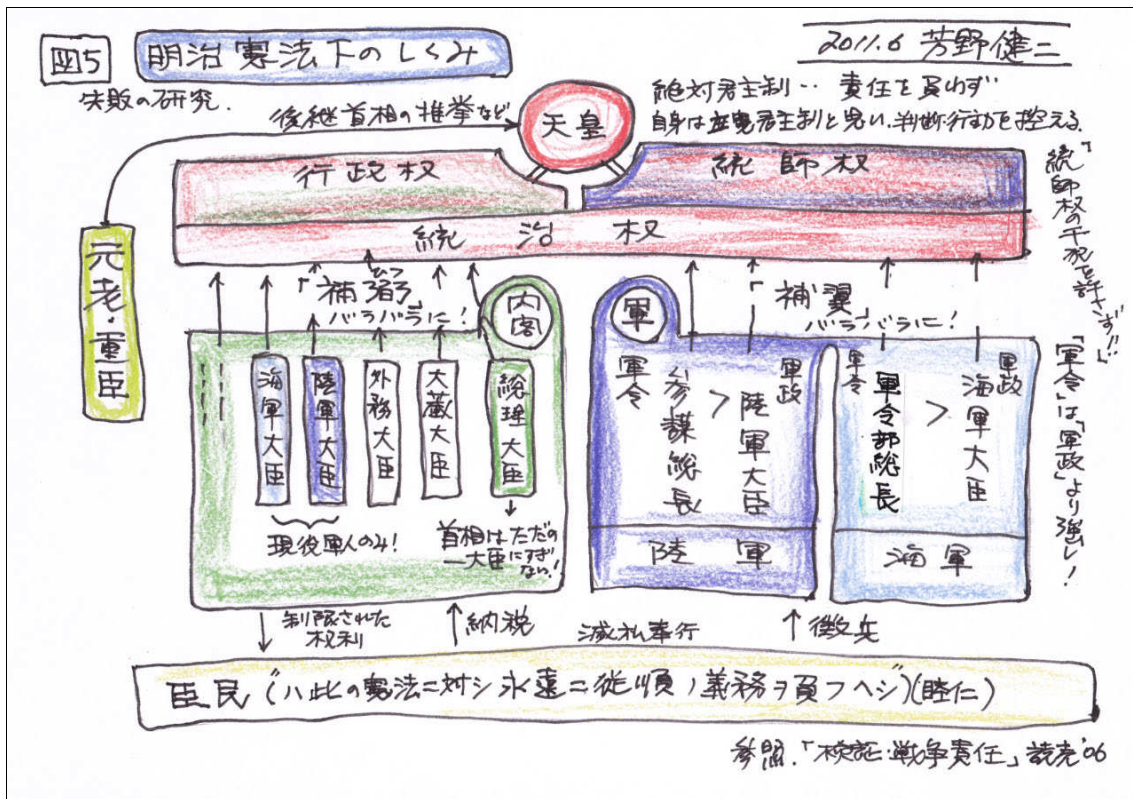 図5
明治憲法下のしくみ
2011.6 芳野健二
失敗の研究.
後継首相の推挙など
天皇
絶対君主制‥ 責任を負わず
自身は立憲君主制と思い、判断・行動を控える.
行政权
統師权
統治权
「統師权の干犯を許さず!!」
元老・重臣
「補弼」
ひつ
バラバラに!
内閣
軍
「補翼」
バラバラに!
海軍大臣
陸軍大臣
外務大臣
大蔵大臣
総理大臣
現役軍人のみ!
首相はただの
一大臣にすぎない!
軍令
参謀総長
>
軍政
陸軍大臣
陸軍
軍令
軍令部総長
>
軍政
海軍大臣
海軍
「軍令」は「軍政」より強し!
制限された
权利
納税
滅私奉行
徴兵
臣民 “ハ此の憲法ニ対シ永遠ニ従順ノ義務ヲ負フヘシ”(睦仁)
参照.「検証・戦争責任」読売'06